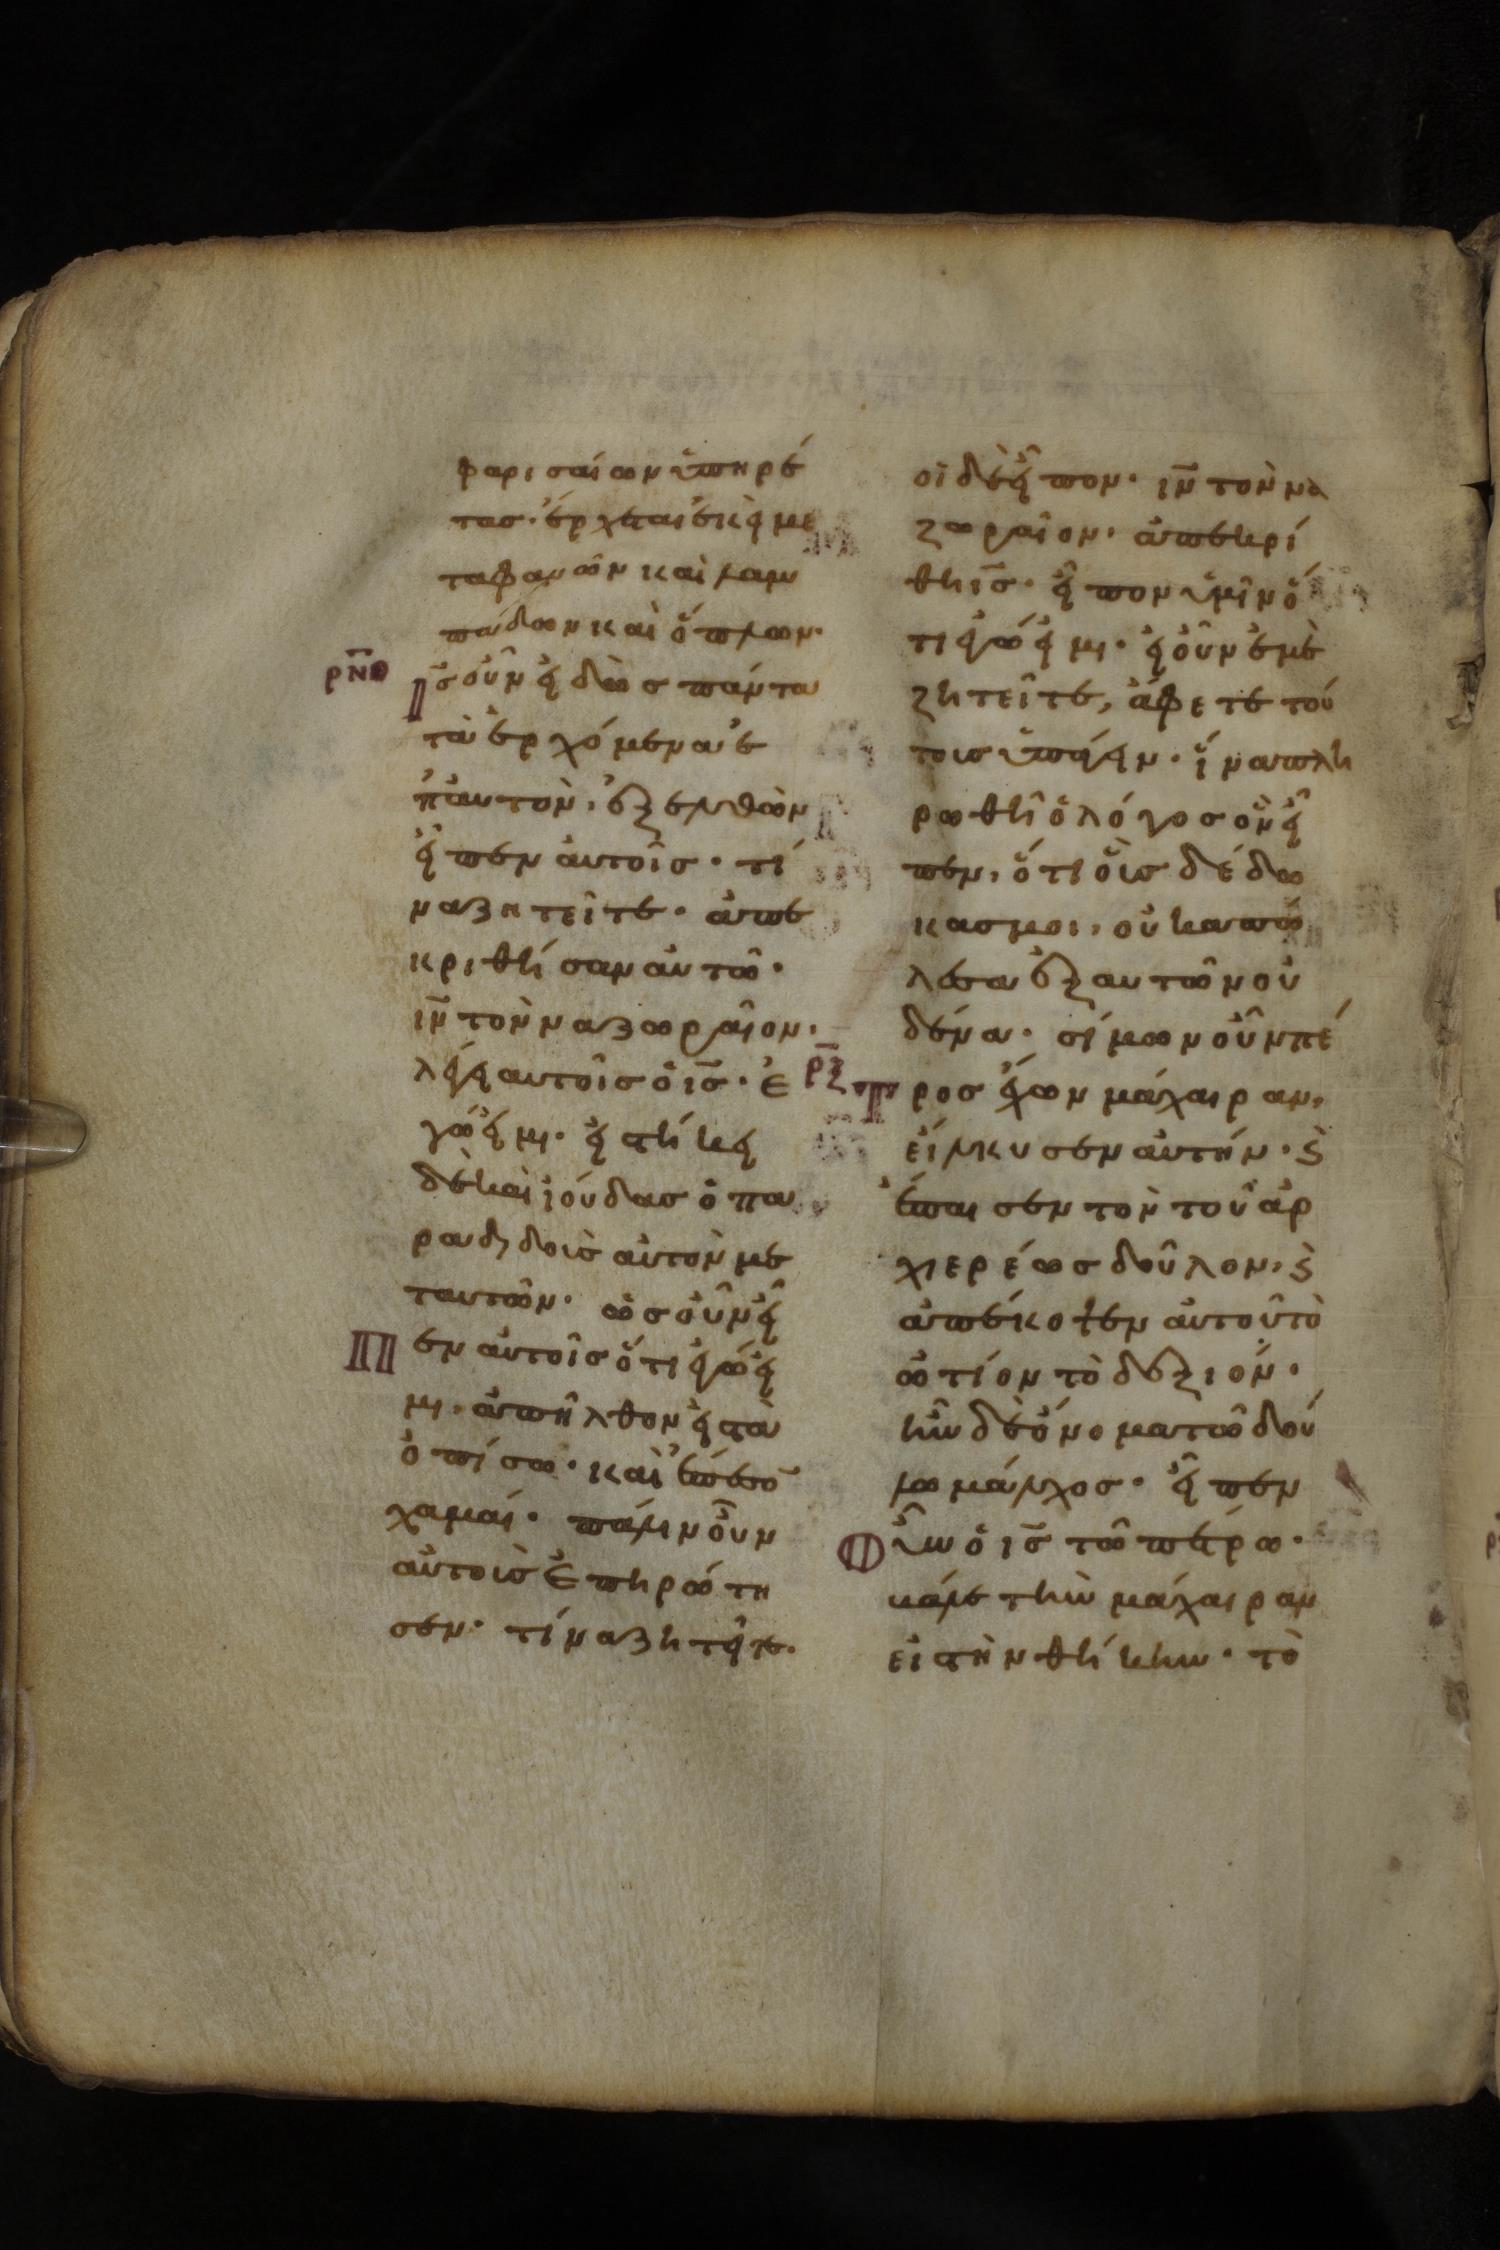 φαρισαίων ὑπηρέ
τας· ἔρχεται ἐκεῖ με
τα φανῶν καὶ λαμ
πάδων καὶ ὅπλων·
ρνθ
Ι̅ς̅ οὖν εἰδὼς πάντα
τὰ ἐρχόμενα ἐ
π' αυτὸν, ἐξελθὼν
εἶπεν αὐτοῖς· τί
να ζητεῖτε· ἀπε
κριθήσαν αὐτῶ·
ι̅ν̅ τὸν ναζωραῖον·
λέγει αυτοῖς ὁ ι̅ς̅· ἐ
γώ εἰμι· εἱστήκει
δὲ καὶ ἰούδας ὁ πα
ραδιδοὺς αὐτὸν με
τ αυτῶν· ὡς οὖν εἶ
Π
εν αὐτοῖς ὅτι ἐγώ εἰ
μι· ἀπῆλθον εἰς τὰ
ὀπίσω· καὶ ἔπεσο̅
χαμαί· πάλιν οὖν
αὐτοὺς ἐπηρώτη
σεν· τίνα ζητεῖτε·
οἱ δὲ εἶπον· ι̅ν̅ τὸν να
ζωραῖον· ἀπεκρί
θη ι̅ς̅· εἶπον ὑμῖν ὅ
τι ἐγώ εἰμι· εἰ οὖν ἐμὲ
ζητεῖτε, ἄφετε τού
τους ὑπάγειν· ἵνα πλη
ρωθῆ ὁ λόγος ὃν εἶ
πεν, ὅτι οὓς δέδω
κας μοι, οὐκ απώ
λεσα ἐξ αυτῶν οὐ
δένα· σίμων οὖν πέ
ρξ
Τ
ρος ἔχων μάχαιραν,
εἵλκυσεν αὐτήν· ϗ
ἔπαισεν τὸν τοῦ ἀρ
χιερέως δοῦλον, ϗ
ἀπέκοψεν αὐτοῦ τὸ
ὠτίον τὸ δεξιόν·
ἦν δὲ ὄνομα τῶ δού
λω μάλχος· εἶπεν
Ο
ὖν ὁ ι̅ς̅ τῶ πέτρω·
βάλε τὴν μάχαιραν
εἰς τὴν θήκην· τὸ